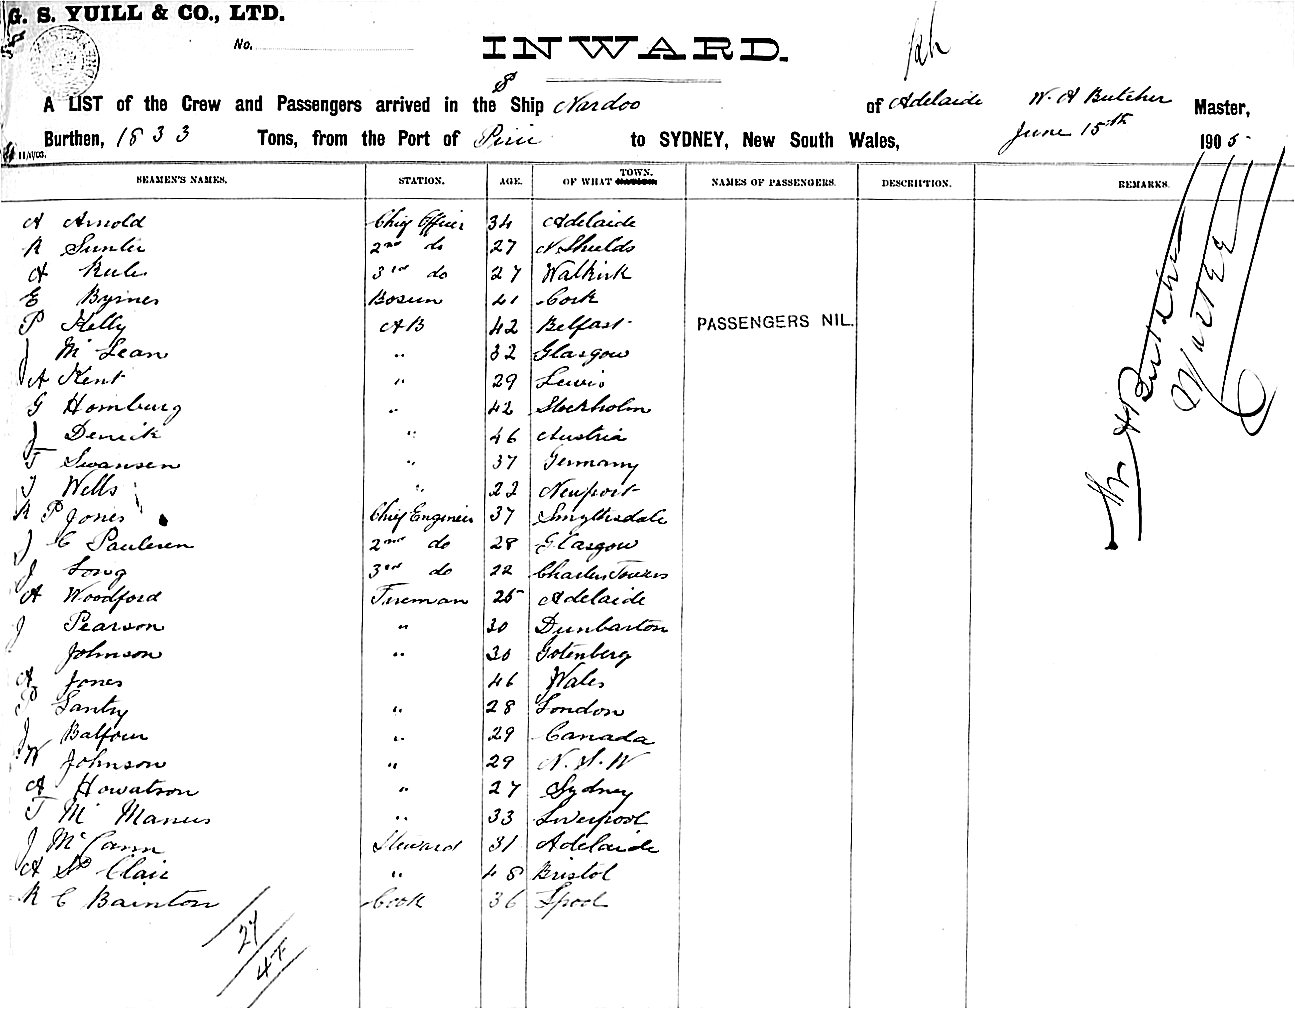 G. S. YUILL & CO., LTD.
No.
INWARD.
A LIST of the Crew and Passengers arrived in the SS Ship Nardoo of Adelaide W. A Butcher Master,
Burthen, 1833 Tons, from the Port of Pirie to SYDNEY, New South Wales, June 15th 1905
SEAMEN'S NAMES. STATION. AGE. OF WHAT TOWN. NAMES OF PASSENGERS. DESCRIPTION. REMARKS.
A Arnold Chief Officer 34 Adelaide
R 2nd do 27 N. Shields
A 3rd do 27
E Byrnes Bosun 41 Cork
P Kelly AB 42 Belfast PASSENGERS NIL.
J McLean " 32 Glasgow
A Kent " 29 Lewis
G Homburg " 42 Stockholm
J " 46 Austria
F Swansen " 37 Germany
J Wells " 22 Newport
R P Jones Chief Engineer 37 Smythsdale
J C Paulsen 2nd do 28 Glasgow
J Long 3rd do 22 Charters Towers
A Woodford Fireman 25 Adelaide
J Pearson " 30 Dunbarton
Johnson " 30 Gotenberg
A Jones 46 Wales
P Santry " 28 London
J Balfour " 29 Canada
W Johnson " 29 N.S.W
A Howatson " 27 Sydney
T McManus " 33 Liverpool
J McCann Steward 31 Adelaide
A St Clair " 48 Bristol
R C Bainton Cook 36 Lpool
27
Wm A Butcher
Master